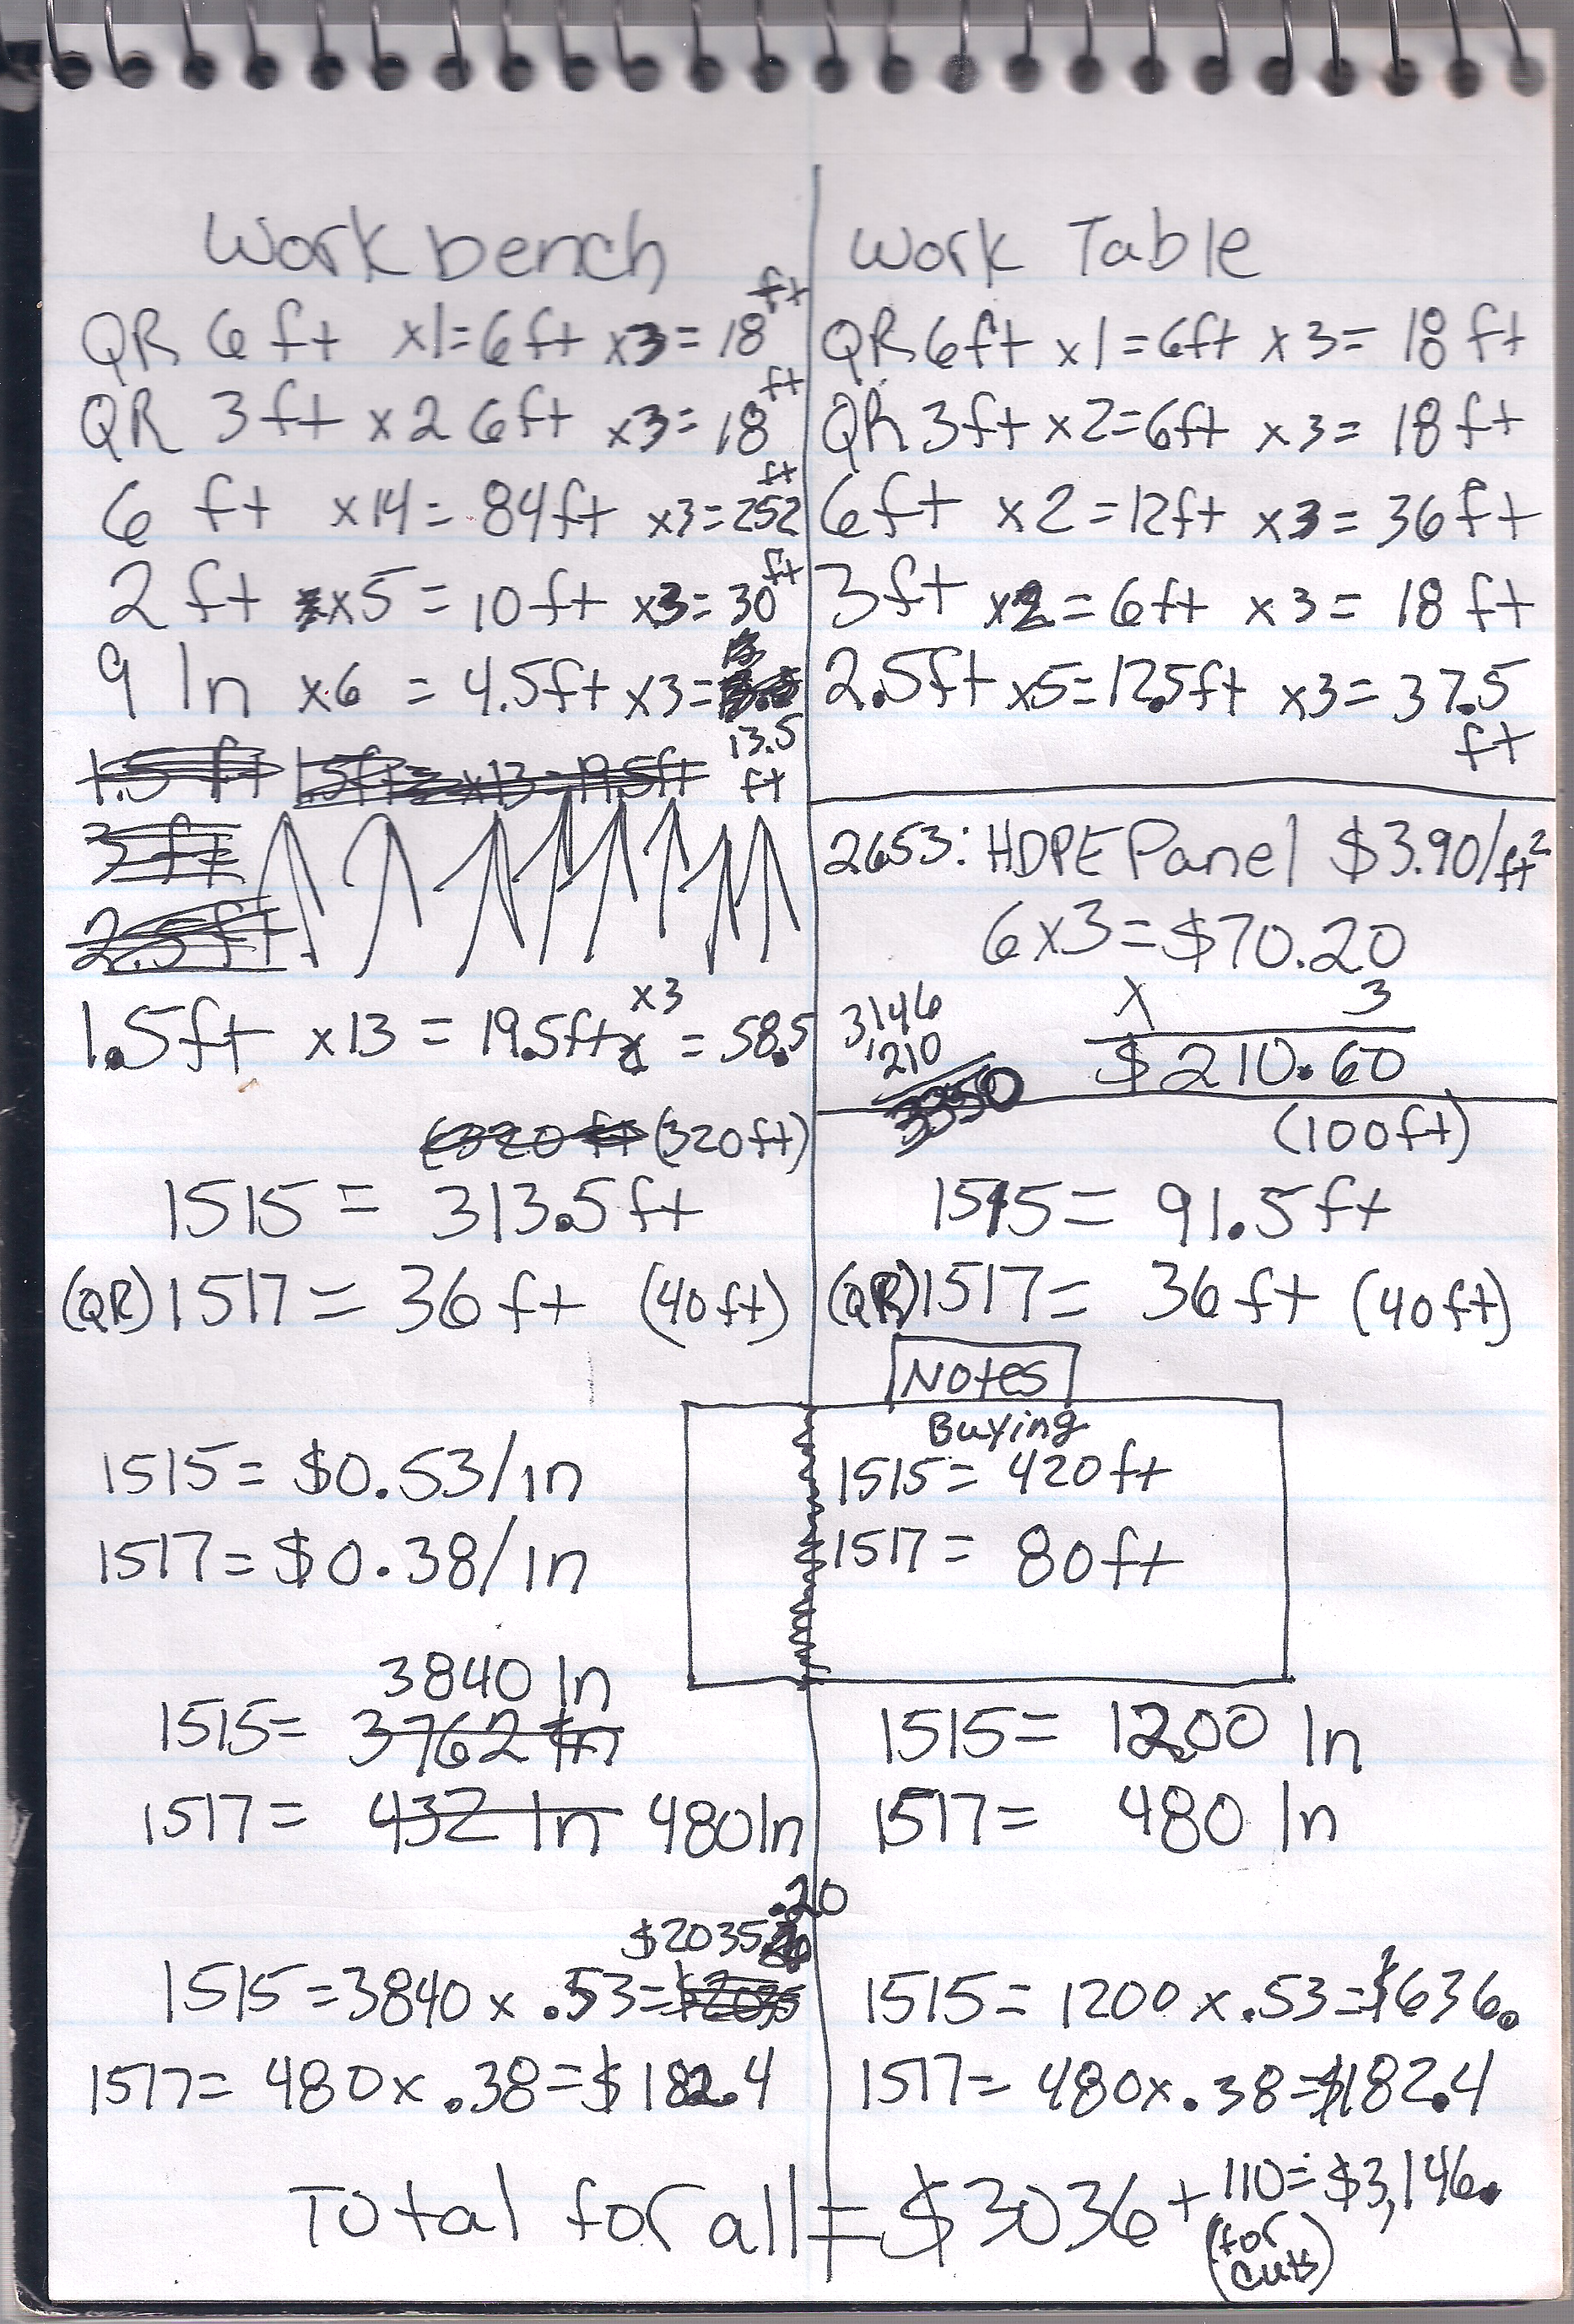 Workbench
QR 6ft x1=6ft x3=18 ft
QR 3ft x2 6ft x3=18 ft
6 ft x14= 84ft x3=252 ft
2 ft x5= 10ft x3=30 ft
9 In x6 = 4.5ft x3=
13.5 ft
1.5 ft 1.5ft= x13=19.5ft
3 ft
2.5ft
1.5ft x13 = 19.5ft x3 = 58.5
(320 ft (320ft)
1515 = 313.5ft
(QR)1517= 36ft (40ft)
1515= $0.53/in
1517= $0.38/in
3840 In
1515= 3762 In
1517= 432 In 480In
$2035 .20
1515=3840x .53=$2035
1517= 480x .38=$182.4
Work Table
QR6ft x1=6ft x3= 18ft
QR3ft x2=6ft x3= 18ft
6ft x2=12ft x3= 36ft
3ft x2=6ft x3= 18ft
2.5ft x5=12.5ft x3= 37.5
ft
2653: HDPE Panel $3.90/ft²
6x3=$70.20
x 3
$210.60
3,146
,210
3350
(100ft)
1515= 91.5ft
(QR)1517= 36ft (40ft)
Notes
Buying
1515= 420ft
1517= 80ft
1515= 1200 In
1517= 480 In
1515= 1200x.53=$636.
1517= 480x.38=$182.4
Total for all = $3036+110=$3,146.
(for
cuts)